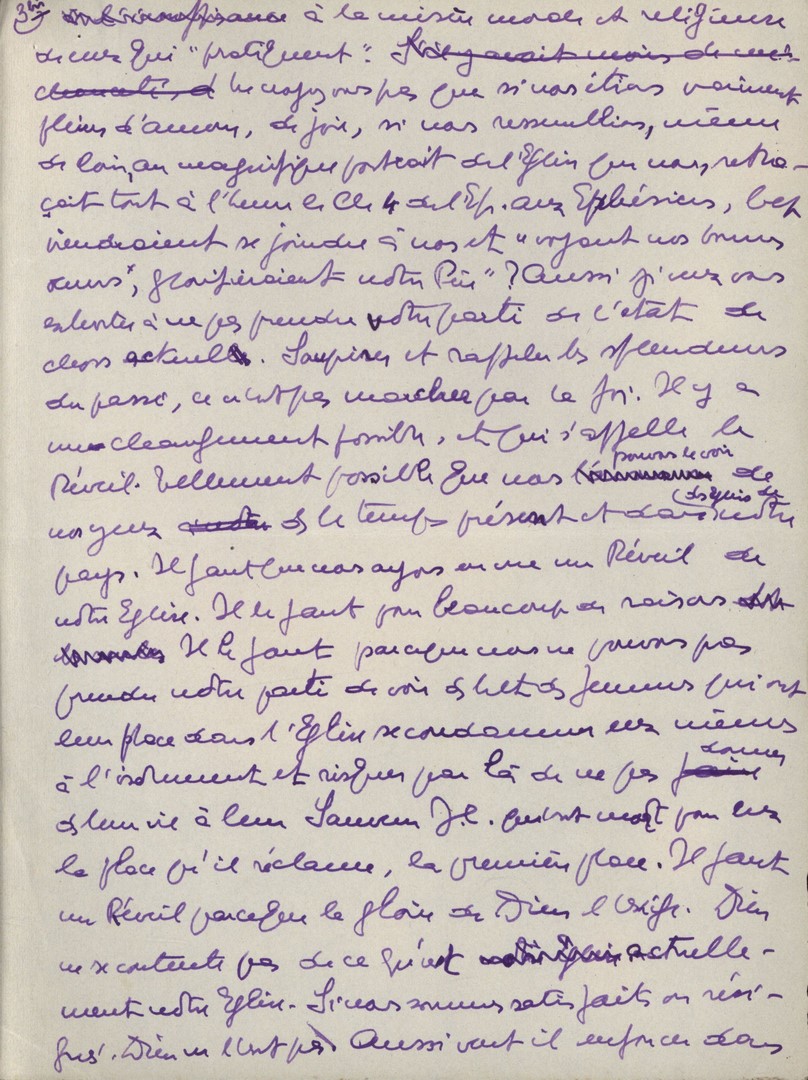 3bis à la misère morale et religieuse
de ceux qui "pratiquent". S'il y avait moins de mé-
chanceté, d Ne croyez vous pas que si nous étions vraiment
pleins d'amour, de joie, si nous ressemblions, même
de loin, au magnifique portrait de l'Eglise que nous retra-
çait tout à l'heure le Ch 4 de l'Ep. aux Ephésiens, bcp
viendraient se joindre à nous et "voyant nos bonnes
œuvres, glorifieraient notre Père"? Aussi je veux vous
exhorter à ne pas prendre votre parti de l'état de
choses actuel. Soupirer et rappeler les splendeurs
du passé, ce n'est pas marcher par la foi. Il y a
un changement possible, et qui s'appelle le
Réveil. Tellement possible que nous pouvons le voir de
nos yeux ds le temps présent et dans notre
pays. Il faut que nous ayons en vue un Réveil de
notre Eglise. Il le faut pour beaucoup de raisons
Il le faut parce que nous ne pouvons pas
prendre notre parti de voir ds h et ds femmes qui ont
leur place dans l'Eglise se condamner eux mêmes
à l'isolement et risquer par là de ne pas faire donner
ds leur vie à leur Sauveur J.C. qui est mort pour eux
la place qu'il réclame, la première place. Il faut
un Réveil parce que la gloire de Dieu l'exige. Dieu
ne se contente pas de ce qu'est actuelle-
ment notre Eglise. Si nous sommes satisfaits ou rési-
gnés, Dieu ne l'est pas. Aussi veut il enfoncer dans